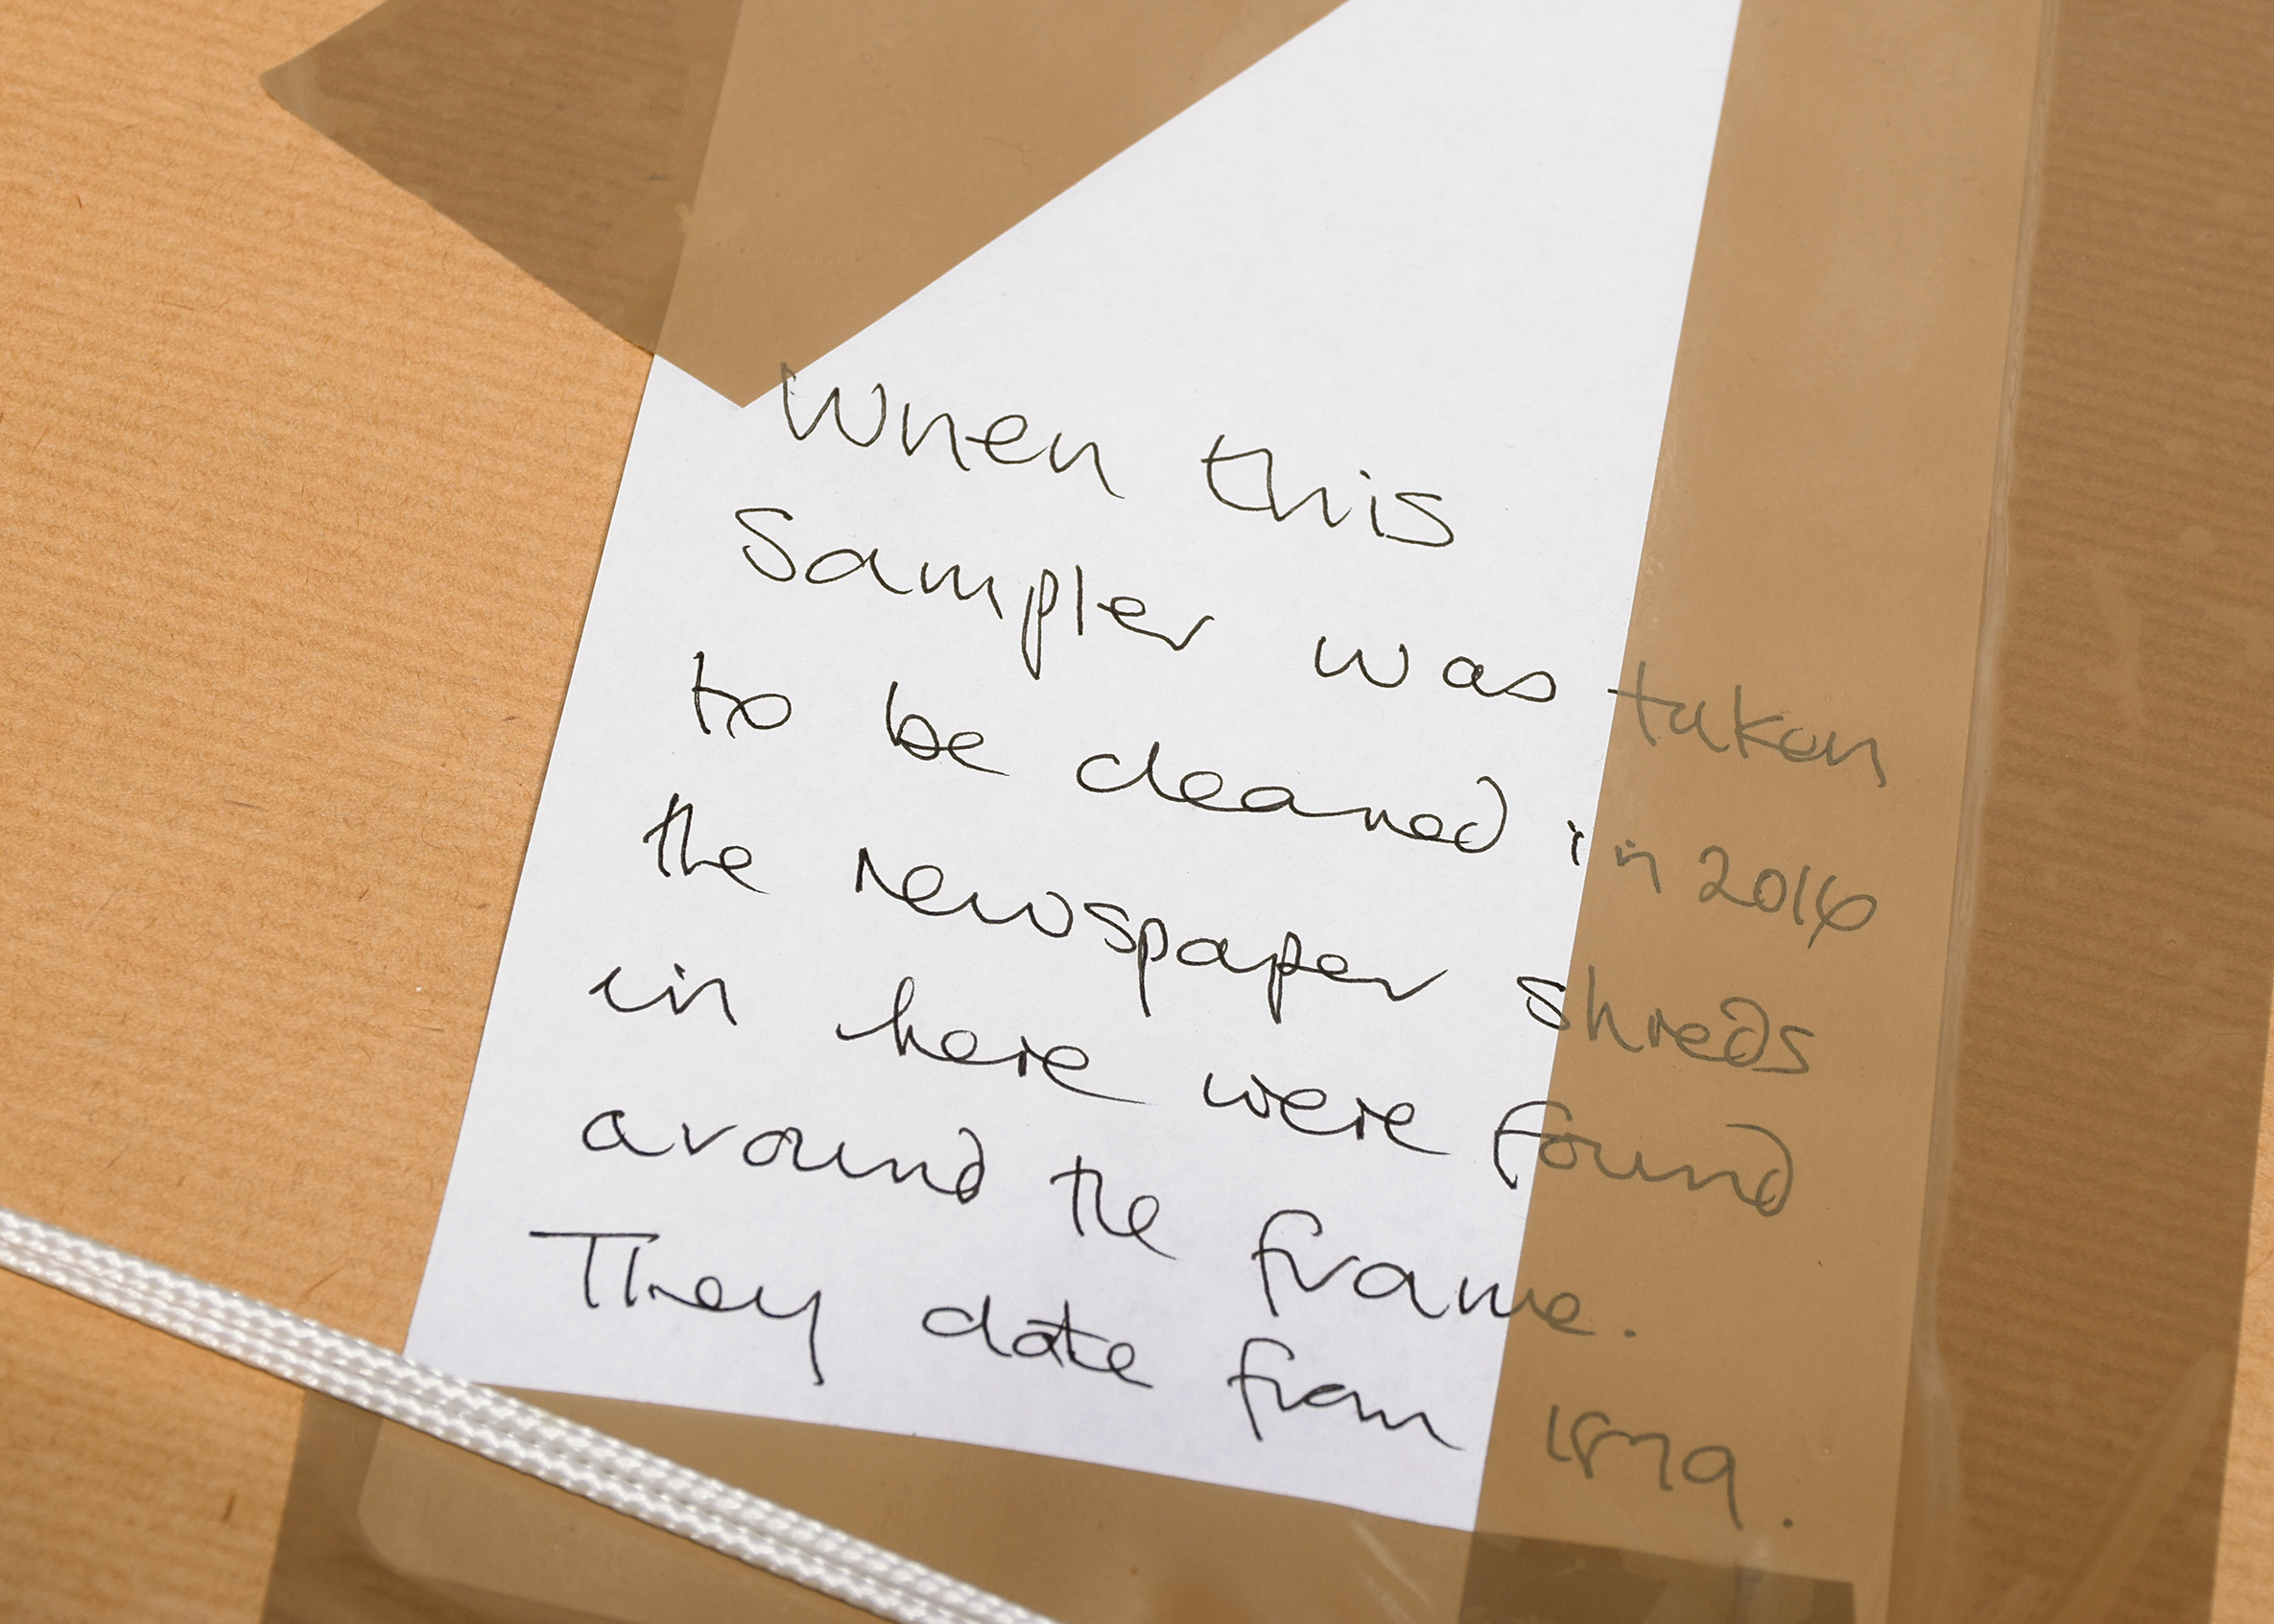 When this
Sampler was taken
to be cleaned in 2016
the newspaper shreds
in here were found
around the frame.
They date from 1879.